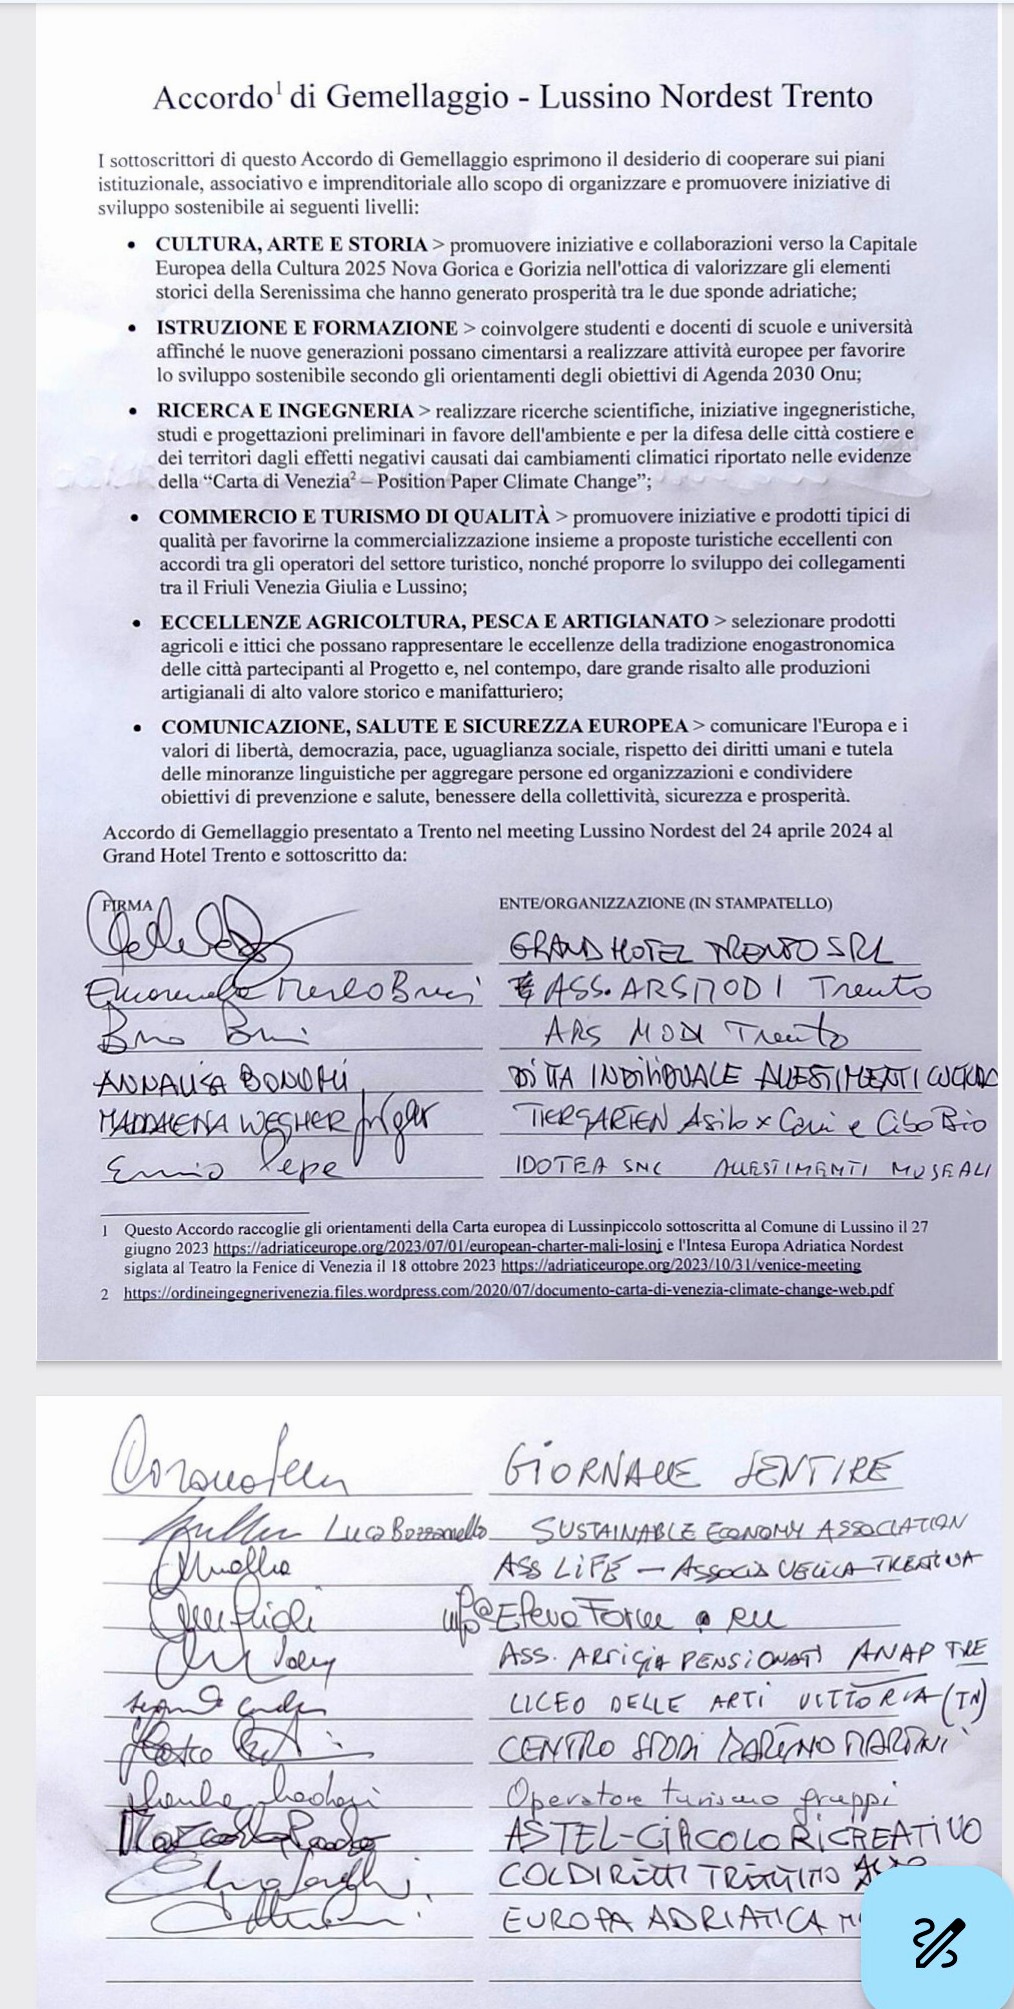 Accordo¹ di Gemellaggio - Lussino Nordest Trento
I sottoscrittori di questo Accordo di Gemellaggio esprimono il desiderio di cooperare sui piani
istituzionale, associativo e imprenditoriale allo scopo di organizzare e promuovere iniziative di
sviluppo sostenibile ai seguenti livelli:
• CULTURA, ARTE E STORIA > promuovere iniziative e collaborazioni verso la Capitale
Europea della Cultura 2025 Nova Gorica e Gorizia nell'ottica di valorizzare gli elementi
storici della Serenissima che hanno generato prosperità tra le due sponde adriatiche;
• ISTRUZIONE E FORMAZIONE > coinvolgere studenti e docenti di scuole e università
affinché le nuove generazioni possano cimentarsi a realizzare attività europee per favorire
lo sviluppo sostenibile secondo gli orientamenti degli obiettivi di Agenda 2030 Onu;
• RICERCA E INGEGNERIA > realizzare ricerche scientifiche, iniziative ingegneristiche,
studi e progettazioni preliminari in favore dell'ambiente e per la difesa delle città costiere e
dei territori dagli effetti negativi causati dai cambiamenti climatici riportato nelle evidenze
della “Carta di Venezia² – Position Paper Climate Change”;
• COMMERCIO E TURISMO DI QUALITÀ > promuovere iniziative e prodotti tipici di
qualità per favorirne la commercializzazione insieme a proposte turistiche eccellenti con
accordi tra gli operatori del settore turistico, nonché proporre lo sviluppo dei collegamenti
tra il Friuli Venezia Giulia e Lussino;
• ECCELLENZE AGRICOLTURA, PESCA E ARTIGIANATO > selezionare prodotti
agricoli e ittici che possano rappresentare le eccellenze della tradizione enogastronomica
delle città partecipanti al Progetto e, nel contempo, dare grande risalto alle produzioni
artigianali di alto valore storico e manifatturiero;
• COMUNICAZIONE, SALUTE E SICUREZZA EUROPEA > comunicare l'Europa e i
valori di libertà, democrazia, pace, uguaglianza sociale, rispetto dei diritti umani e tutela
delle minoranze linguistiche per aggregare persone ed organizzazioni e condividere
obiettivi di prevenzione e salute, benessere della collettività, sicurezza e prosperità.
Accordo di Gemellaggio presentato a Trento nel meeting Lussino Nordest del 24 aprile 2024 al
Grand Hotel Trento e sottoscritto da:
FIRMA ENTE/ORGANIZZAZIONE (IN STAMPATELLO)
GRAND HOTEL TRENTO SRL
ASS. ARS MODI Trento
ARS MODI Trento
ANNALISA DITTA INDIVIDUALE ALLESTIMENTI
MADDALENA WEGHER TIERGARTEN Asilo x Cani e Cibo Bio
Ennio Pepe IDOTEA SNC ALLESTIMENTI MUSEALI
1 Questo Accordo raccoglie gli orientamenti della Carta europea di Lussinpiccolo sottoscritta al Comune di Lussino il 27
giugno 2023 https://adriaticeurope.org/2023/07/01/european-charter-mali-losinj e l'Intesa Europa Adriatica Nordest
siglata al Teatro la Fenice di Venezia il 18 ottobre 2023 https://adriaticeurope.org/2023/10/31/venice-meeting
2 https://ordineingegnerivenezia.files.wordpress.com/2020/07/documento-carta-di-venezia-climate-change-web.pdf
GIORNALE SENTIRE
Luca SUSTAINABLE ECONOMY ASSOCIATION
ASS LIFE –
ASS. PENSIONATI ANAP
LICEO DELLE ARTI VITTORIA (TN)
CENTRO STUDI MARTINO MARTINI
Operatore turismo gruppi
ASTEL-CIRCOLO RICREATIVO
COLDIRETTI TRENTINO
EUROPA ADRIATICA